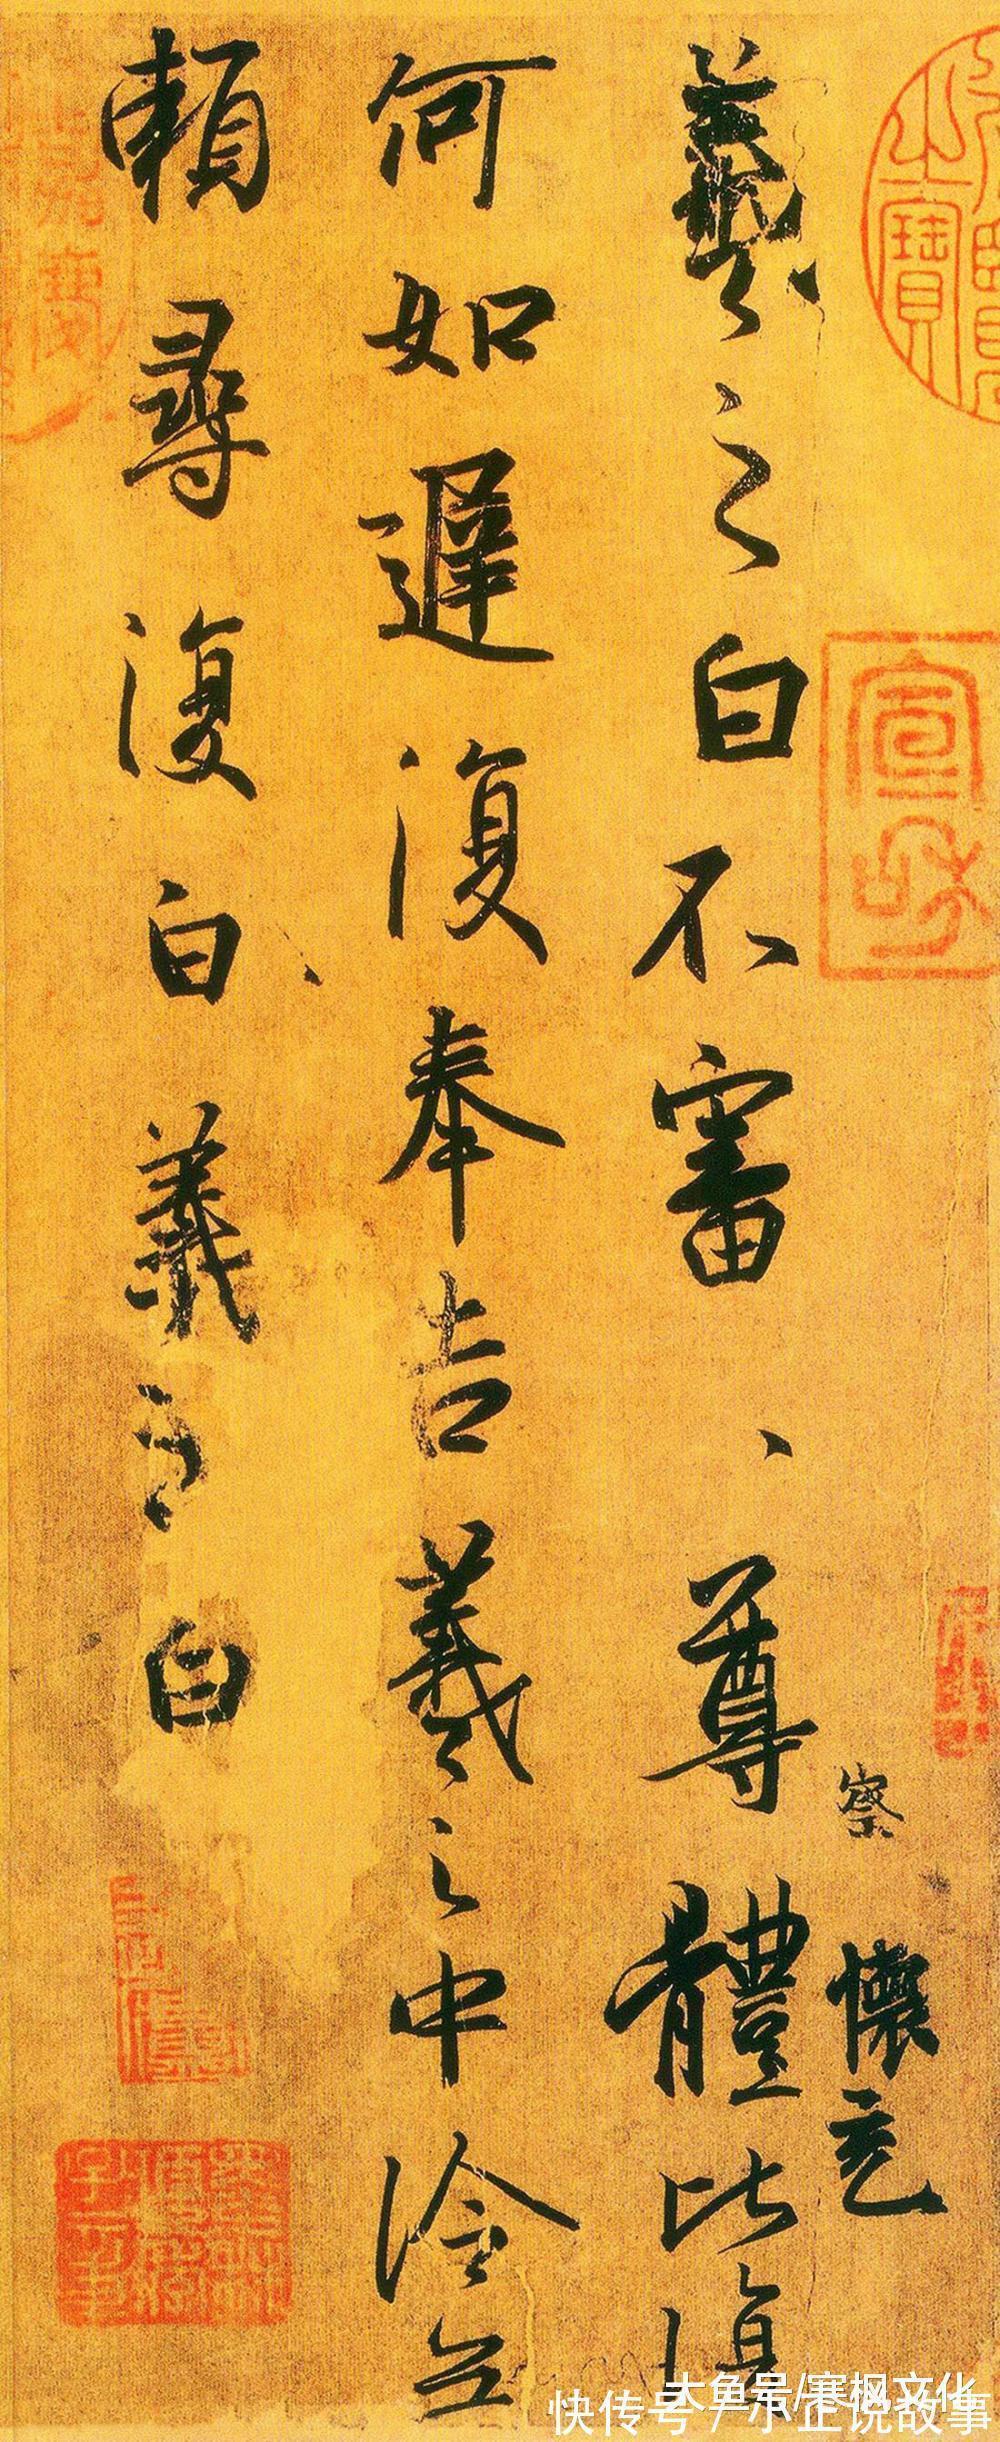 羲之白不審、尊體比復
何如遲復奉告羲之中冷無
賴尋復白羲之白
察
懷充
宣和
之寶
大鱼号/寒枫文化
快传号/小正说故事